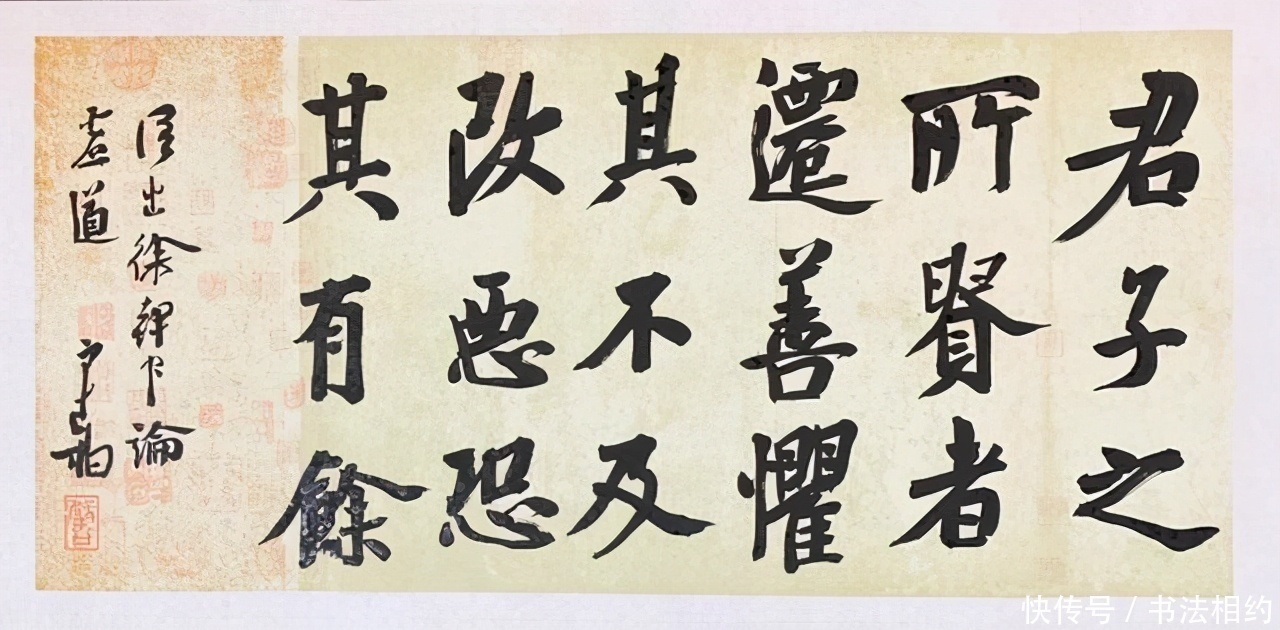 君子之
所賢者
遷善懼
其不及
改惡恐
其有餘
语出徐幹中論
虚道
快传号 / 书法相约